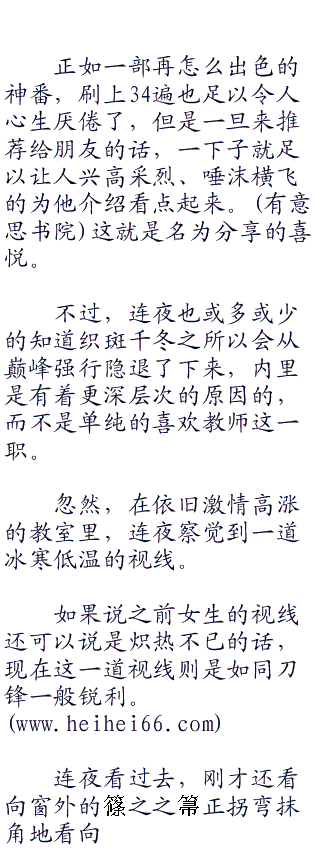 正如一部再怎么出色的
神番，刷上34遍也足以令人
心生厌倦了，但是一旦来推
荐给朋友的话，一下子就足
以让人兴高采烈、唾沫横飞
的为他介绍看点起来。(有意
思书院)这就是名为分享的喜
悦。
不过，连夜也或多或少
的知道织斑千冬之所以会从
巅峰强行隐退了下来，内里
是有着更深层次的原因的，
而不是单纯的喜欢教师这一
职。
忽然，在依旧激情高涨
的教室里，连夜察觉到一道
冰寒低温的视线。
如果说之前女生的视线
还可以说是炽热不已的话，
现在这一道视线则是如同刀
锋一般锐利。
(www.heihei66.com)
连夜看过去，刚才还看
向窗外的篠之之箒正拐弯抹
角地看向